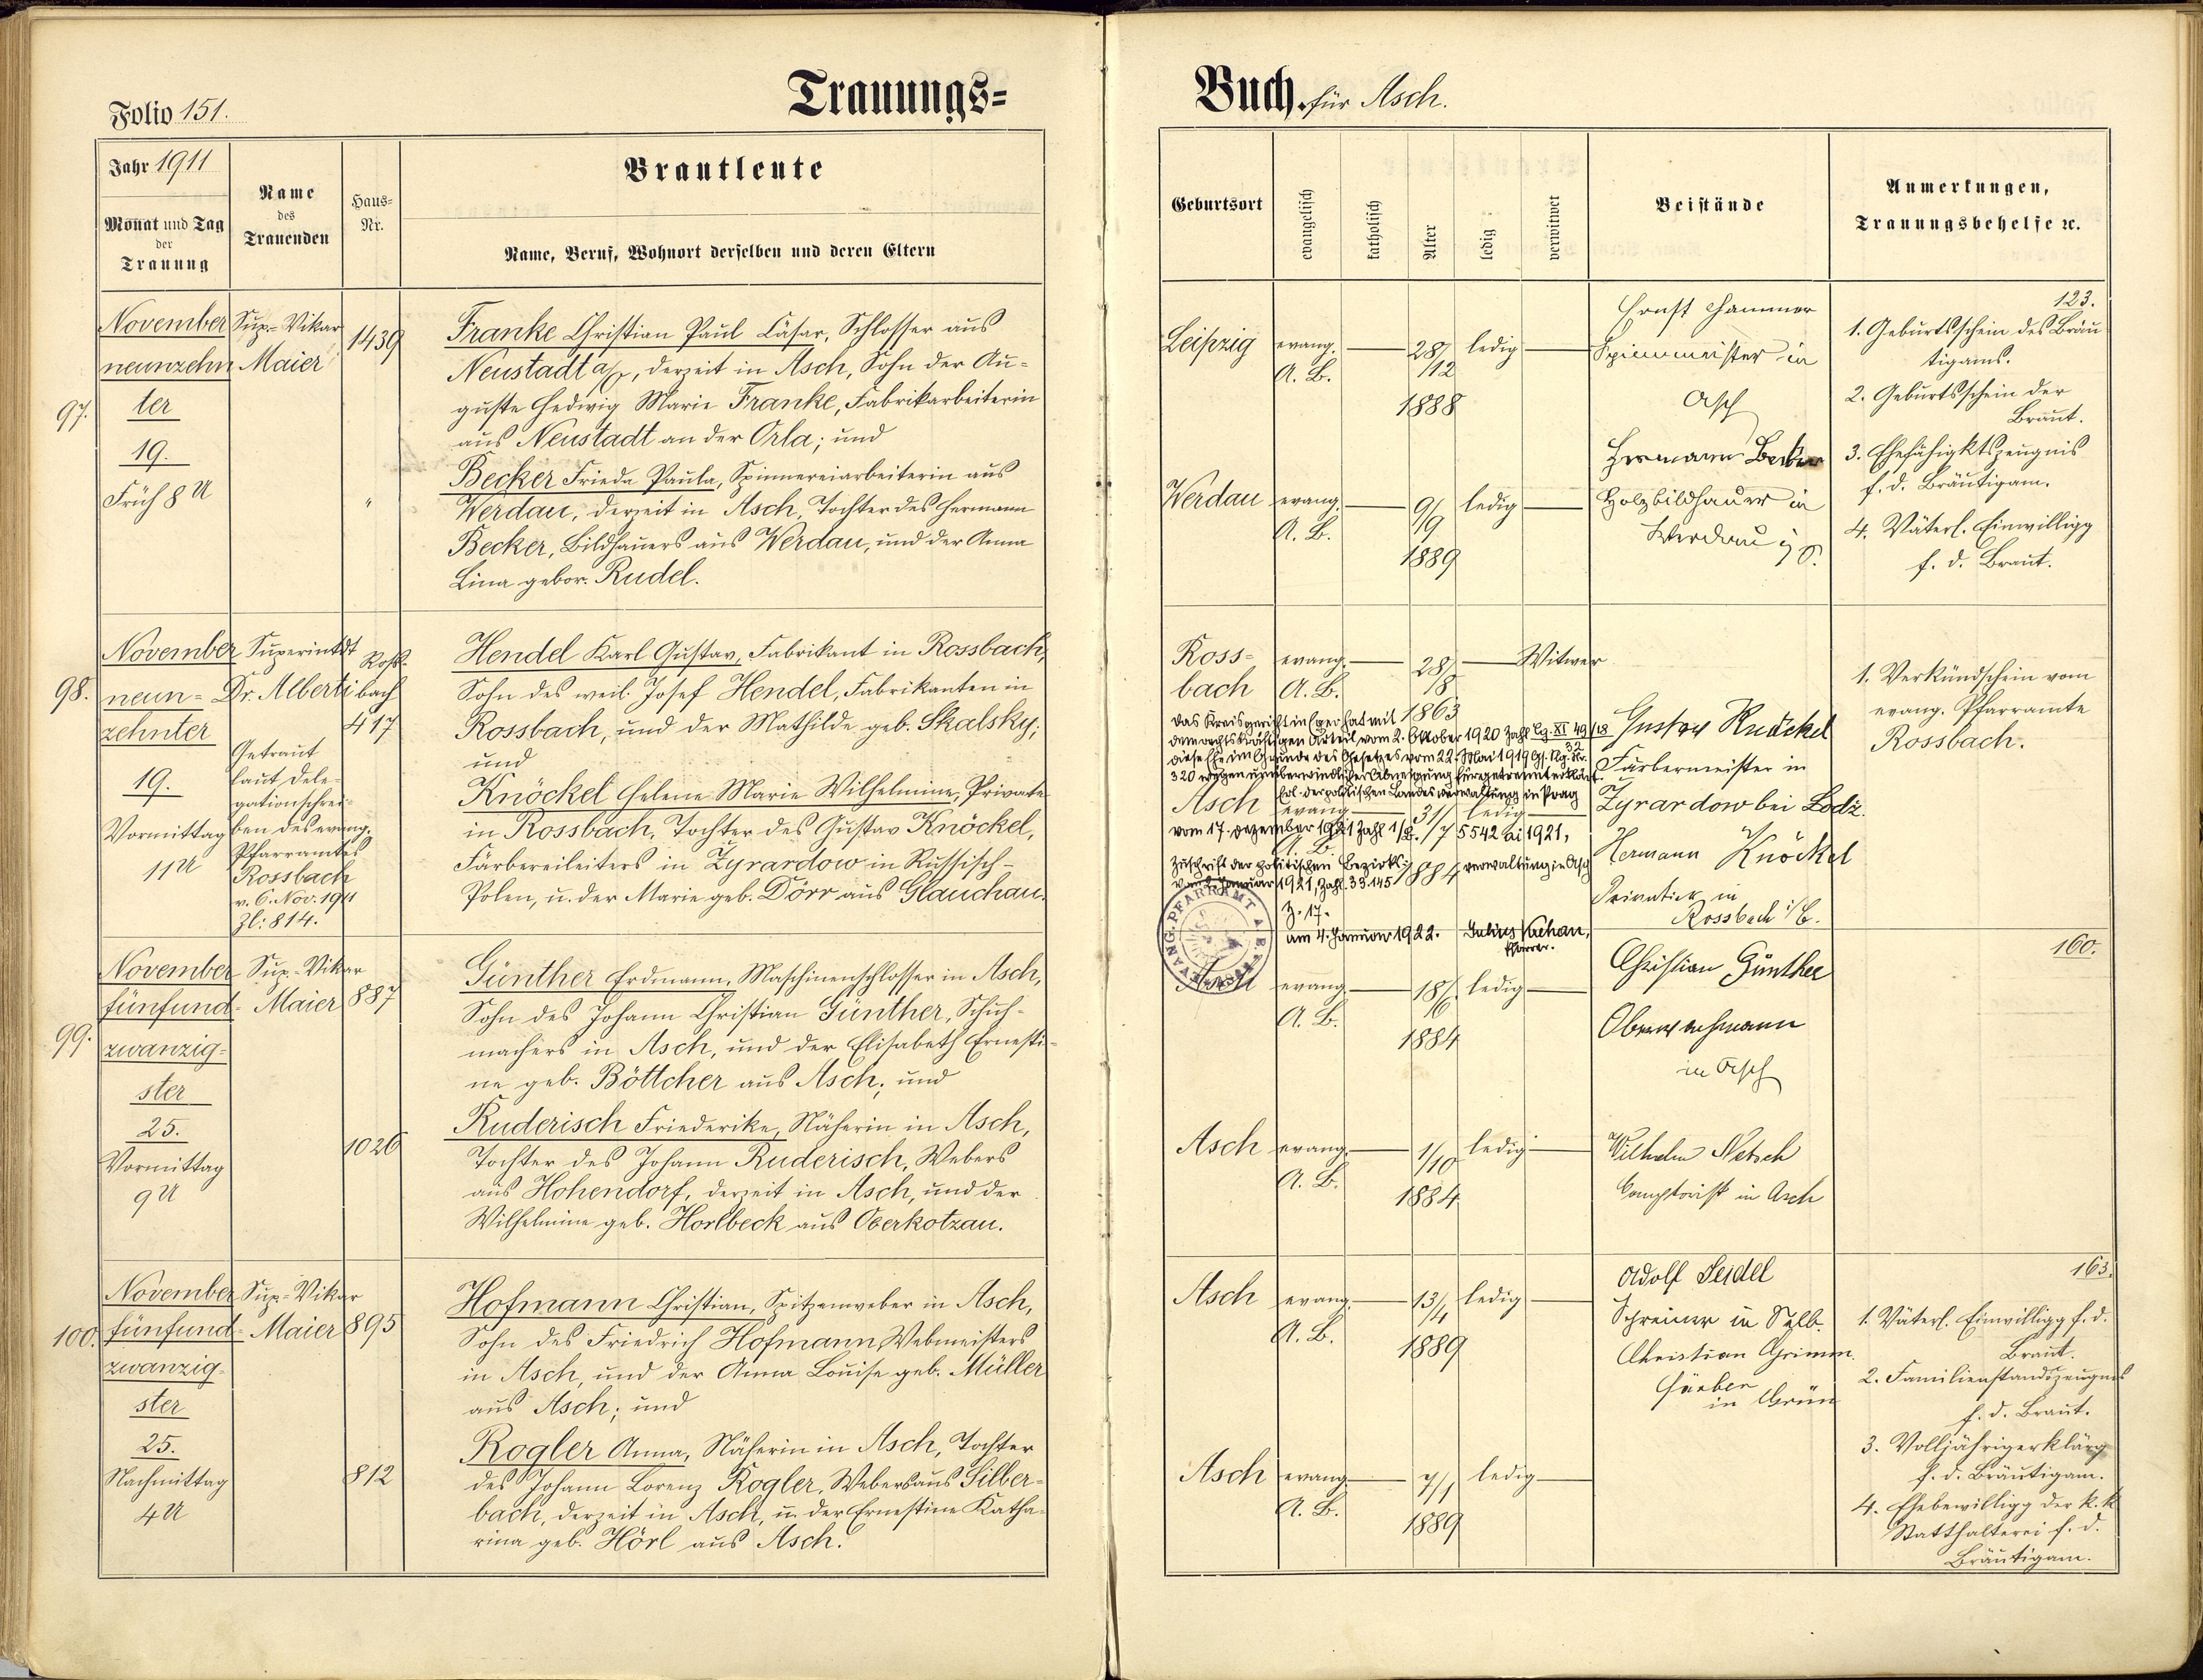 Trauungs=
Buch. für Asch.
Folio 151.
Jahr 1911
Monat und Tag
der
Trauung
Name
des
Trauenden
Haus=
Nr.
Brautleute
Name, Beruf, Wohnort derselben und deren Eltern
Geburtsort
evangelisch
katholisch
Alter
ledig
verwitwet
Beistände
Anmerkungen,
Trauungsbehelfe ꝛc.
97.
November
neunzehn
ter
19.
Früh 8 U
Sup.-Vikar
Maier
1439
"
Franke Christian Paul Cäsar, Schlosser aus
Neustadt a/O, derzeit in Asch, Sohn der Au-
guste Hedwig Marie Franke, Fabrikarbeiterin
aus Neustadt an der Orla; und
Becker Frieda Paula, Spinnereiarbeiterin aus
Werdau, derzeit in Asch, Tochter des Hermann
Becker, Bildhauers aus Werdau, und der Anna
Lina gebor. Rudel.
Leipzig evang. 28/ ledig
A. B. /12
1888
Werdau evang. 9/ ledig
A. B. /9
1889
Ernst Hammer
Spinnmeister in
Asch
Hermann Becker
Holzbildhauer in
Werdau i/S.
123.
1. Geburtsschein des Bräu
tigams.
2. Geburtsschein der
Braut.
3. Ehefähigktszeugnis
f. d. Bräutigam.
4. Väterl. Einwilligg
f. d. Braut.
98.
November
neun-
zehnter
19.
Vormittag
11 U
Superintdt
Dr. Alberti
Getraut
laut Dele-
gationschrei-
ben des evang.
Pfarramtes
Rossbach
v. 6. Nov. 1911
Zl: 814.
Roß-
bach
417
Hendel Karl Gustav, Fabrikant in Rossbach,
Sohn des weil. Josef Hendel, Fabrikanten in
Rossbach, und der Mathilde geb. Skalsky;
und
Knöckel Helene Marie Wilhelmine, Private
in Rossbach, Tochter des Gustav Knöckel,
Färbereileiters in Zyrardow in Russisch-
Polen, u. der Marie geb. Dörr aus Glauchau.
Ross- evang. 28/ Witwer
bach A. B. /8
1863
Das Kreisgericht in Eger hat mit
dem rechtskräftigen Urteil vom 2. Oktober 1920 Zahl Cg. XI 49/18
32
diese Ehe im Grunde des Gesetzes vom 22. Mai 1919 Gs. Slg. Nr.
320 wegen unüberwindlicher Abneigung für getrennt erklärt.
Erl. der politischen Landesverwaltung in Prag
Asch evang. 31/ ledig
vom 17. Dezember 1921 Zahl 1/B. /7 5542 ai 1921,
A. B.
Zuschrift der politischen Bezirks- 1884 verwaltung in Asch
vom 2. Jänner 1921, Zahl 33.145
Z. 17.
am 4. Januar 1922. Julius Kachan,
Pfarrer.
EVANG. PFARRAMT A. B. ASCH
Gustav Knöckel
Färbermeister in
Zyrardow bei Lodz.
Hermann Knöckel
Privatier in
Rossbach i/B.
1. Verkündschein vom
evang. Pfarramte
Rossbach.
99.
November
fünfund-
zwanzig-
ster
25.
Vormittag
9 U
Sup.-Vikar
Maier
887
1026
Günther Erdmann, Maschinenschlosser in Asch,
Sohn des Johann Christian Günther, Schuh-
machers in Asch, und der Elisabeth Ernesti-
ne geb. Böttcher aus Asch; und
Ruderisch Friederike, Näherin in Asch,
Tochter des Johann Ruderisch, Webers
aus Hohendorf, derzeit in Asch, und der
Wilhelmine geb. Horlbeck aus Oberkotzau.
Asch evang. 18/ ledig
A. B. /6
1884
Asch evang. 1/ ledig
A. B. /10
1884
Christian Günther
in Asch
Wilhelm Netsch
Comptoirist in Asch
160.
100.
November
fünfund-
zwanzig-
ster
25.
Nachmittag
4 U
Sup.-Vikar
Maier
895
812
Hofmann Christian, Spitzenweber in Asch,
Sohn des Friedrich Hofmann, Webmeisters
in Asch, und der Anna Louise geb. Müller
aus Asch; und
Rogler Anna, Näherin in Asch, Tochter
des Johann Lorenz Rogler, Webers aus Silber-
bach, derzeit in Asch, u. der Ernestine Katha-
rina geb. Hörl aus Asch.
Asch evang. 13/ ledig
A. B. /4
1889
Asch evang. 7/ ledig
A. B. /1
1889
Adolf Seidel
Schreiner in Selb.
Christian Grimm.
Färber
in Grün
163.
1. Väterl. Einwilligg f. d.
Braut.
2. Familienstandszeugnis
f. d. Braut.
3. Volljährigerklärg
f. d. Bräutigam.
4. Ehebewilligg der k. k.
Statthalterei f. d.
Bräutigam.